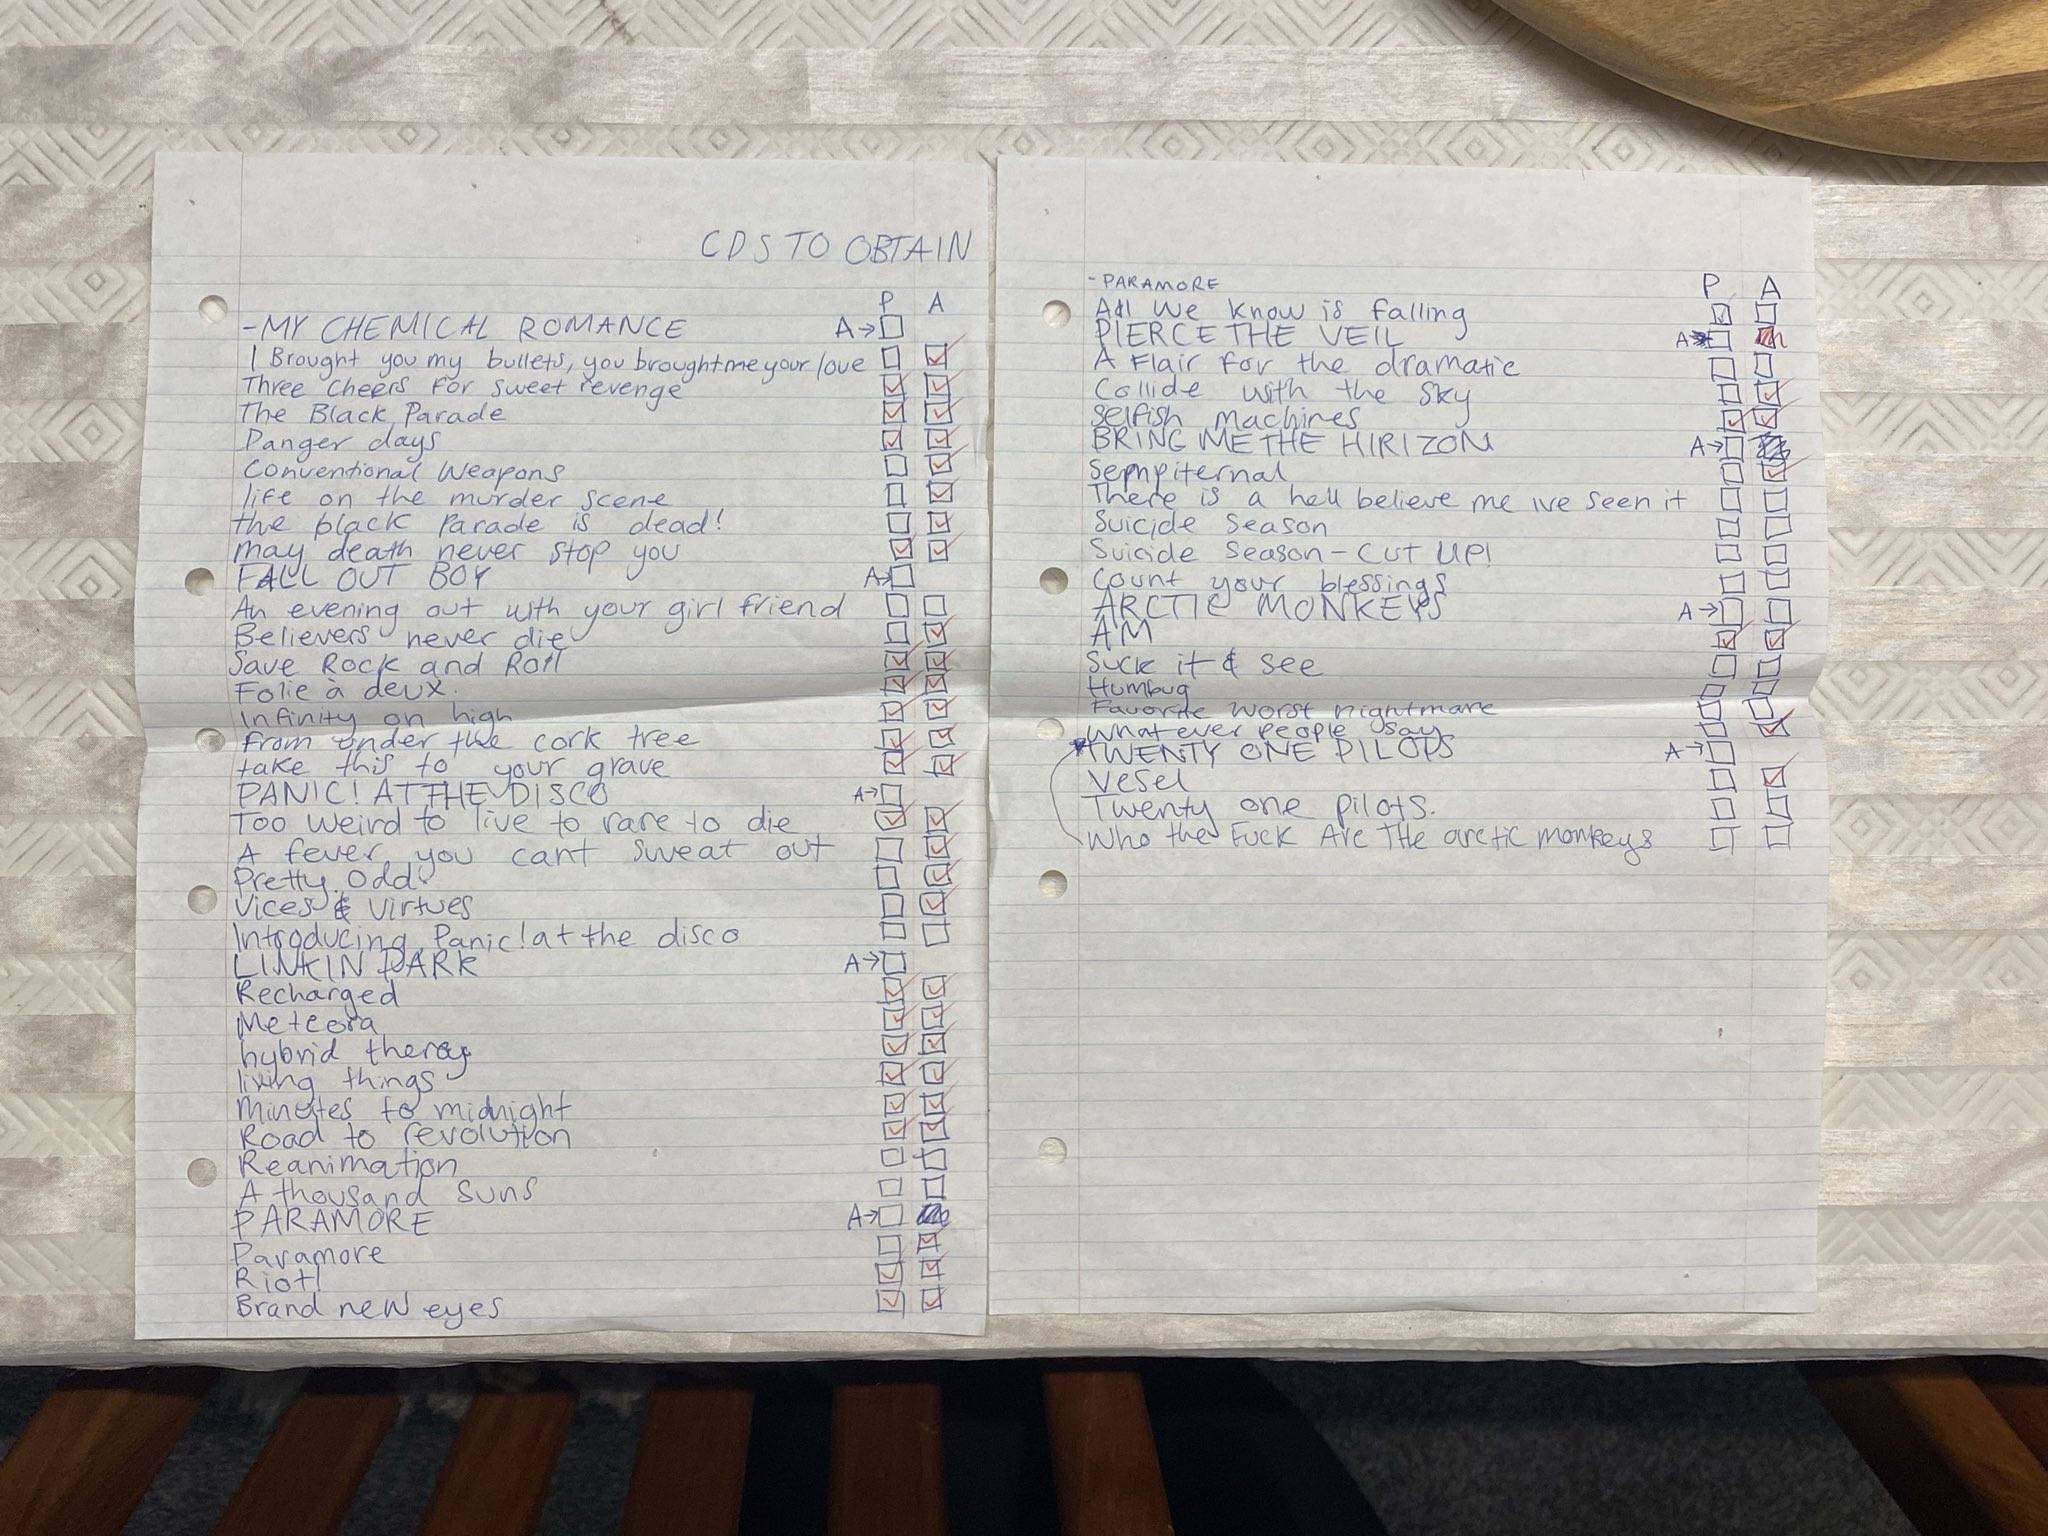 CDS TO OBTAIN
P A
-MY CHEMICAL ROMANCE A→
I Brought you my bullets, you brought me your love
Three cheers for sweet revenge
The Black Parade
Danger days
Conventional Weapons
life on the murder scene
the black Parade is dead!
may death never stop you
FALL OUT BOY A→
An evening out with your girl friend
Believers never die
Save Rock and Roll
Folie à deux.
Infinity on high
from under the cork tree
take this to your grave
PANIC! AT THE DISCO A→
Too weird to live to rare to die
A fever you cant sweat out
Pretty. Odd.
Vices & Virtues
Introducing Panic! at the disco
LINKIN PARK A→
Recharged
Meteora
hybrid theroy
living things
Minutes to midnight
Road to revolution
Reanimation
A thousand suns
PARAMORE A→
Paramore
Riot!
Brand new eyes
-PARAMORE P A
All We know is falling
PIERCE THE VEIL A→
A Flair for the dramatic
Collide with the sky
Selfish machines
BRING ME THE HIRIZON A→
Sempiternal
There is a hell believe me ive seen it
Suicide Season
Suicide Season - CUT UP!
Count your blessings
ARCTIC MONKEYS A→
AM
Suck it & see
Humbug
Favorite worst nightmare
Whatever people say
*TWENTY ONE PILOTS A→
Vesel
Twenty one pilots.
Who the Fuck Are The arctic monkeys